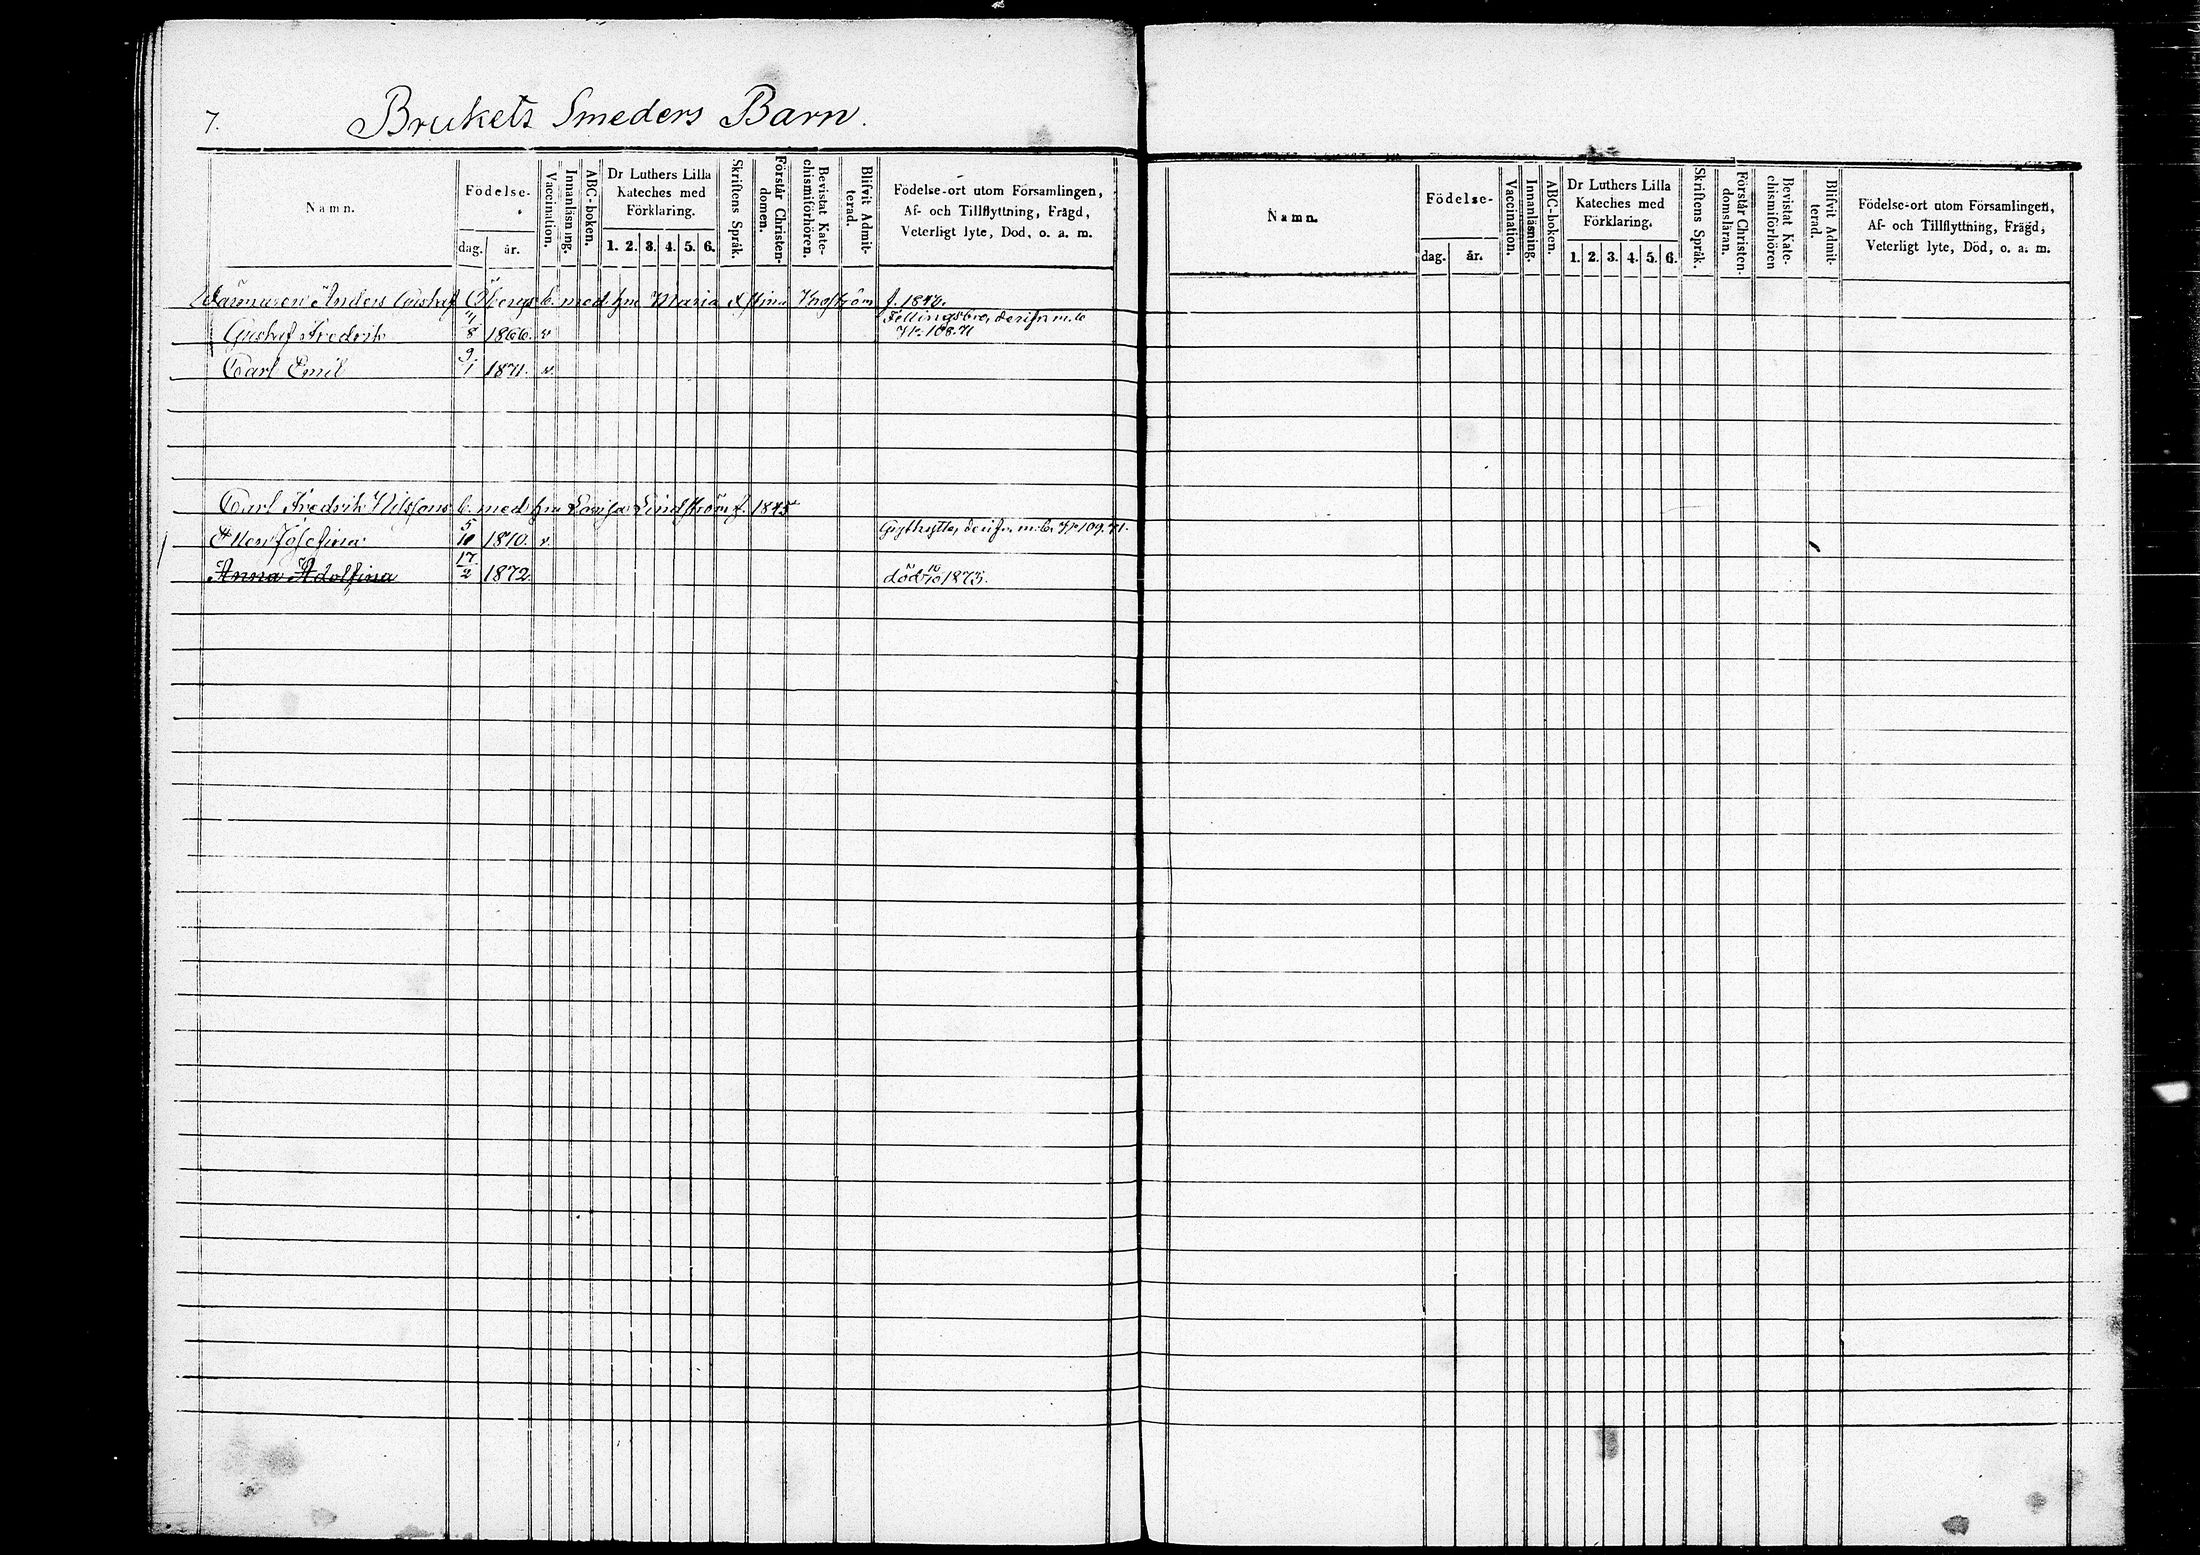 7. Brukets Smeders Barn.
Namn. Födelse- dag. år. Vaccination. Innanläsning. ABC-boken. Dr Luthers Lilla Kateches med Förklaring. 1. 2. 3. 4. 5. 6. Skriftens Språk. Förstår Christendomen. Bevistat Katechismiförhören. Blifvit Admitterad. Födelse-ort utom Församlingen, Af- och Tillflyttning, Frägd, Veterligt lyte, Död, o. a. m.
Anders Gustaf Öbergs b. med hu Maria Stina
Fellingsbro, derifr. m. b.
Gustaf Fredrik 8 1866. v
Carl Emil 9/1 1871. v.
Carl Fredrik Nilssons b. med hu Lovisa Lindström f. 1845
Ellen Josefina 5/10 1870. v. Grythytte, derifr. m. b. 109. 71.
Anna Adolfina 17/2 1872. död 1875.
Namn. Födelse- dag. år. Vaccination. Innanläsning. ABC-boken. Dr Luthers Lilla Kateches med Förklaring. 1. 2. 3. 4. 5. 6. Skriftens Språk. Förstår Christendomsläran. Bevistat Katechismiförhören Blifvit Admitterad. Födelse-ort utom Församlingen, Af- och Tillflyttning, Frägd, Veterligt lyte, Död, o. a. m.